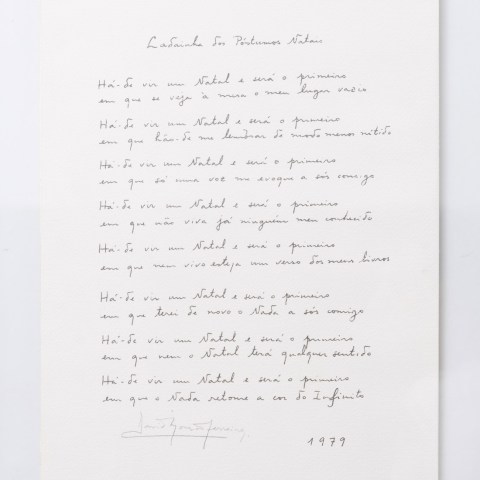 Ladainha dos Póstumos Natais
Há-de vir um Natal e será o primeiro
em que se veja à mesa o meu lugar vazio
Há-de vir um Natal e será o primeiro
em que hão-de me lembrar de modo menos nítido
Há-de vir um Natal e será o primeiro
em que só uma voz me evoque a sós consigo
Há-de vir um Natal e será o primeiro
em que não viva já ninguém meu conhecido
Há-de vir um Natal e será o primeiro
em que nem vivo esteja um verso dos meus livros
Há-de vir um Natal e será o primeiro
em que terei de novo o Nada a sós comigo
Há-de vir um Natal e será o primeiro
em que nem o Natal terá qualquer sentido
Há-de vir um Natal e será o primeiro
em que o Nada retome a cor do Infinito
1979